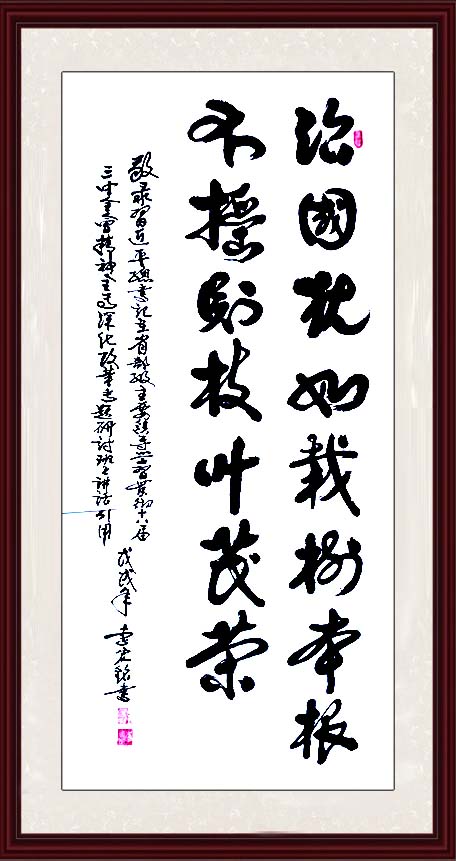 治國犹如栽树本根
不摇则枝叶茂荣
敬录习近平总书记在省部级主要领导学习贯彻十八届
三中全会精神全面深化改革专题研讨班上讲话引用
戊戌年 书